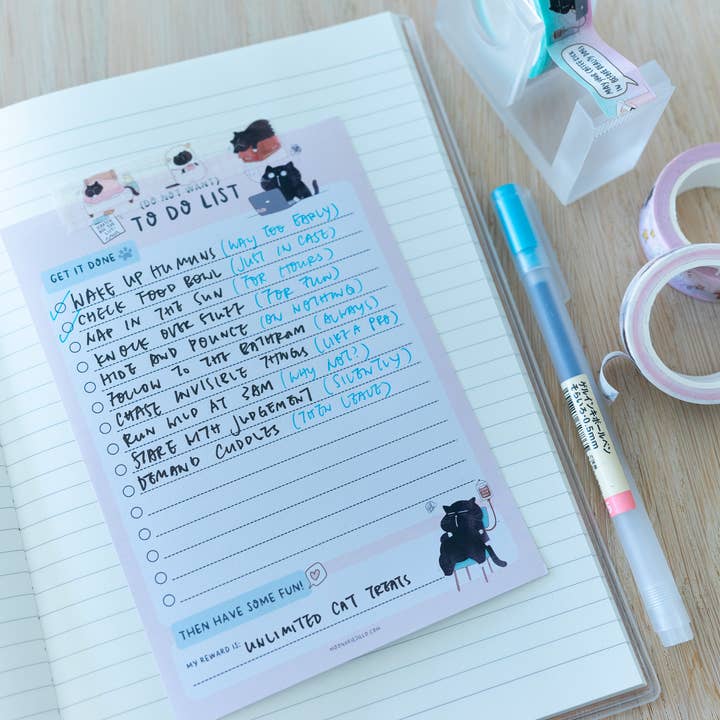 (DO NOT WANT)
TO DO LIST
GET IT DONE
WAKE UP HUMANS (WAY TOO EARLY)
CHECK FOOD BOWL (JUST IN CASE)
NAP IN THE SUN (FOR HOURS)
KNOCK OVER STUFF (FOR FUN)
HIDE AND POUNCE (ON NOTHING)
FOLLOW TO THE BATHROOM (ALWAYS)
CHASE INVISIBLE THINGS (LIKE A PRO)
RUN WILD AT 2AM (WHY NOT?)
STARE WITH JUDGEMENT (SILENTLY)
DEMAND CUDDLES (THEN LEAVE)
THEN HAVE SOME FUN!
MY REWARD IS: UNLIMITED CAT TREATS
ゲルインキボールペン
そらいろ・0.5mm